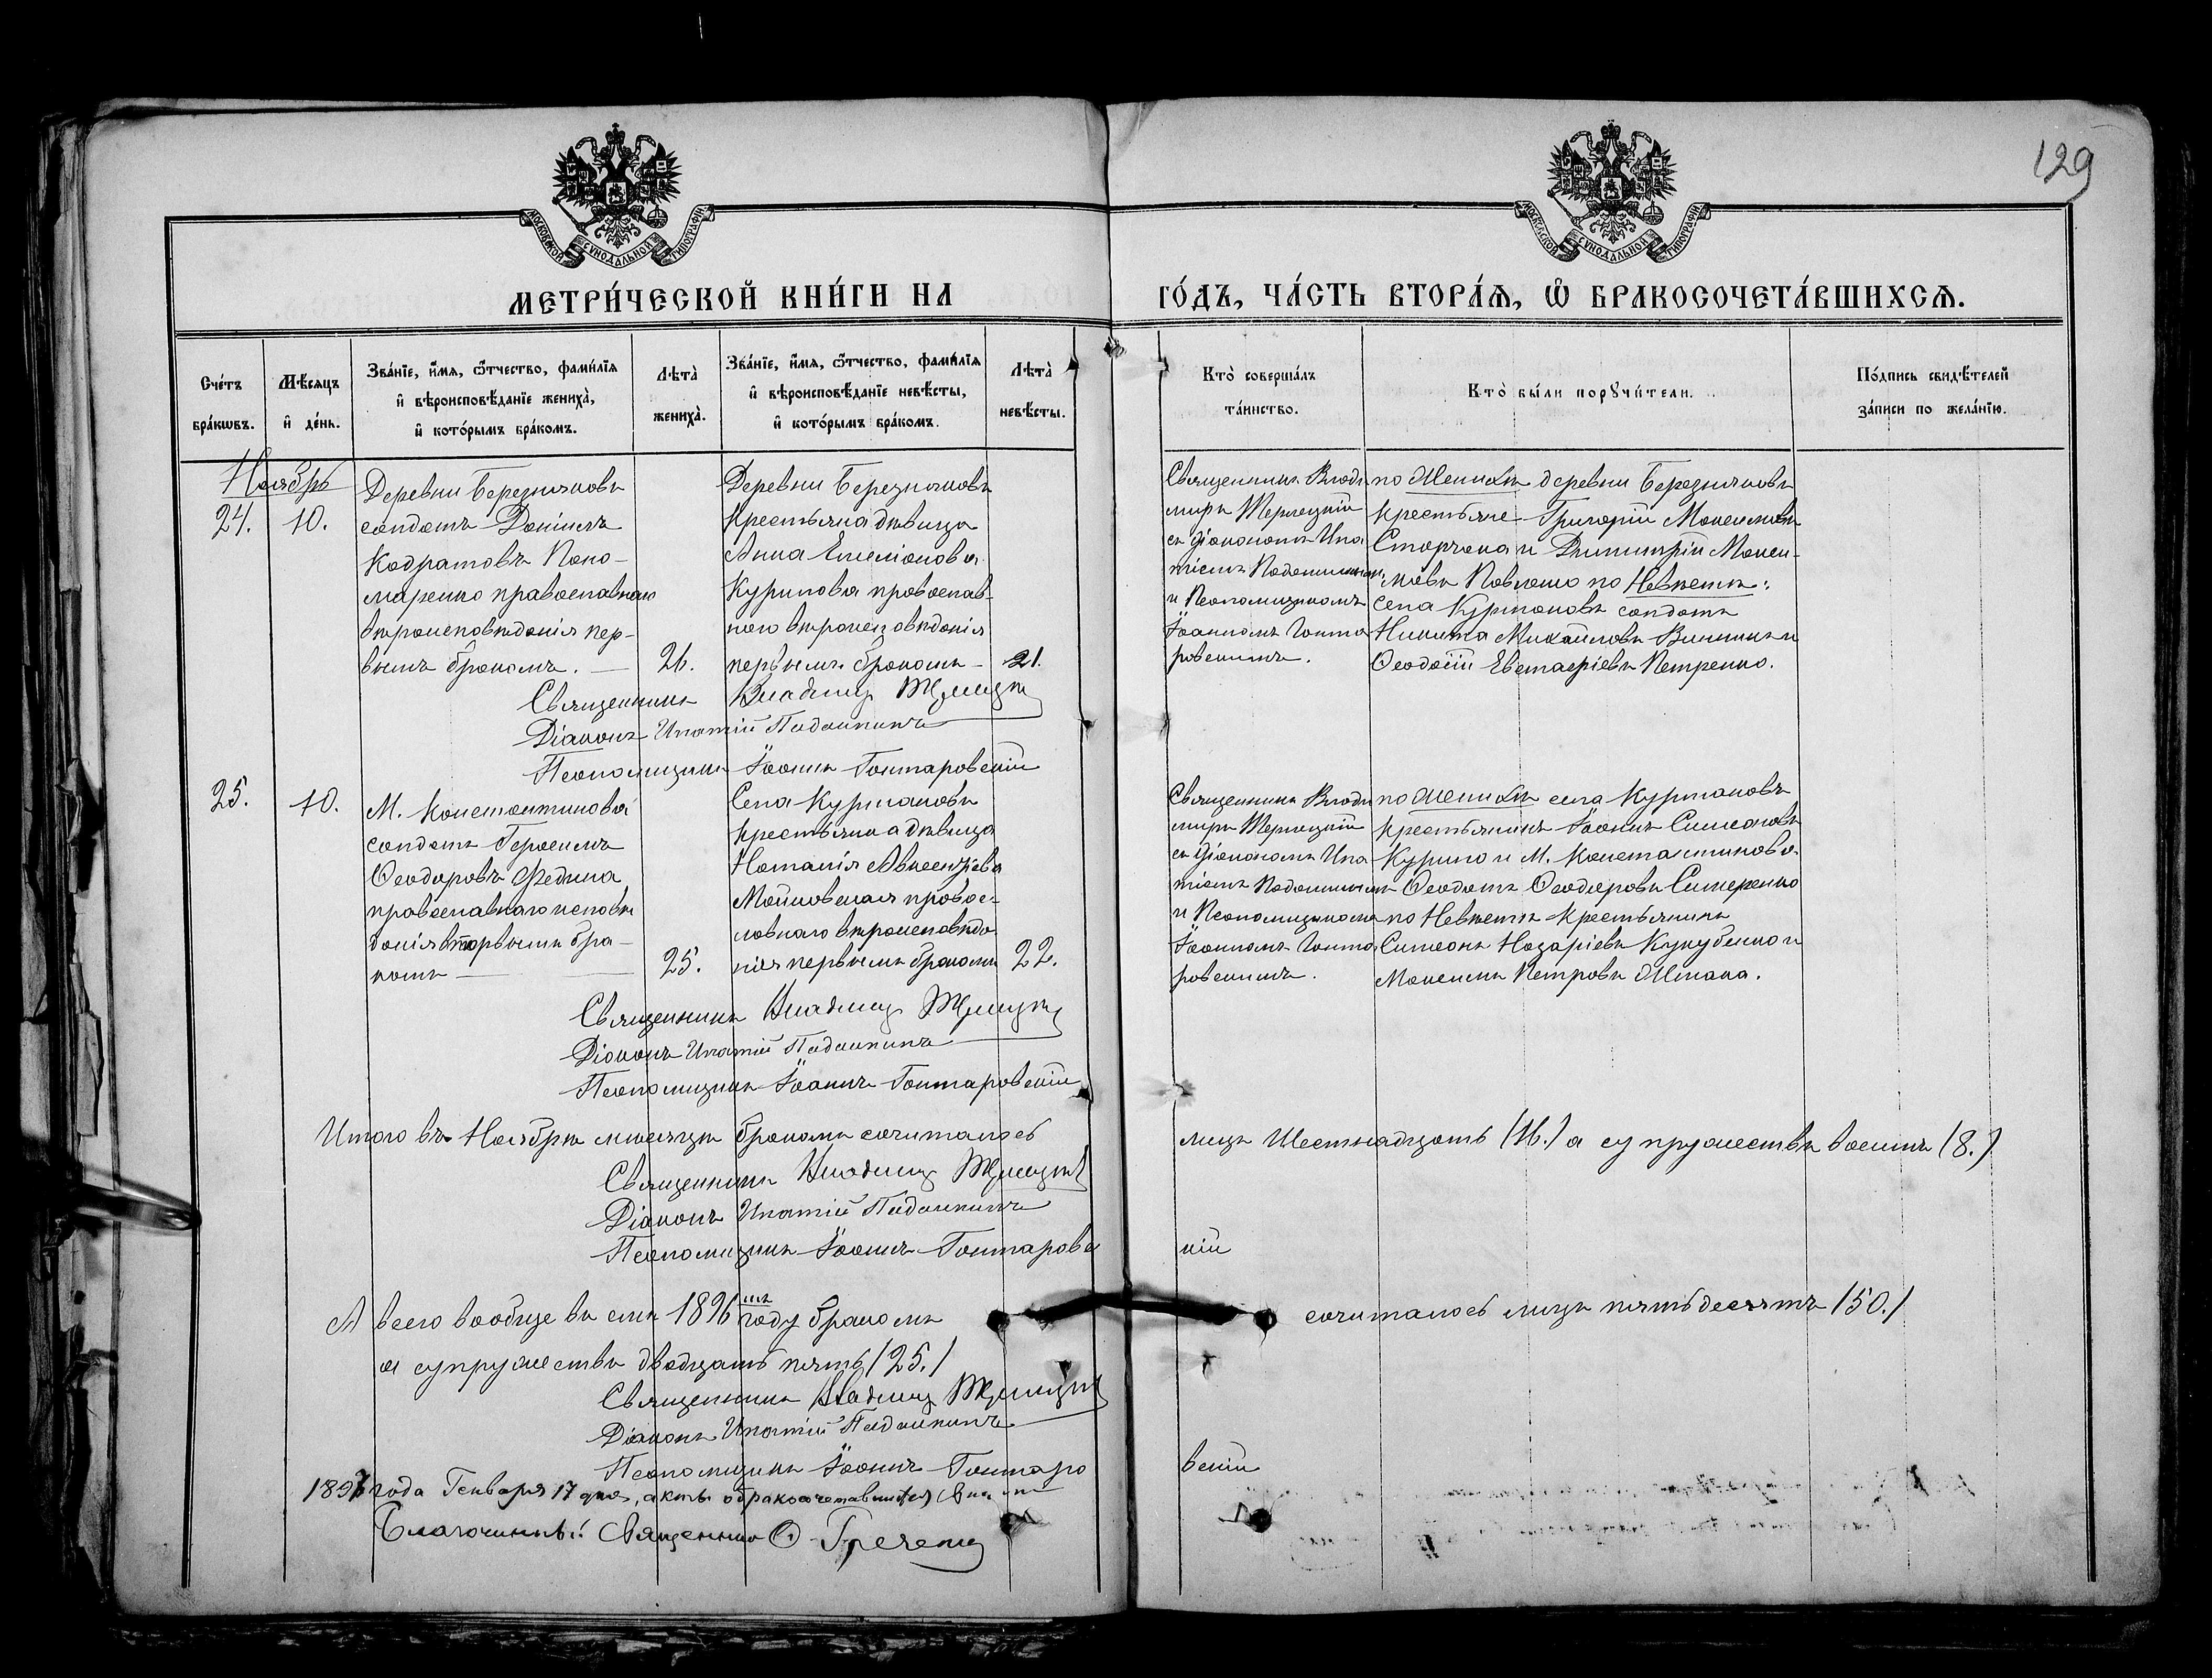 129
МОСКОВСКОЙ СѴНОДАЛЬНОЙ ТИПОГРАФІИ
МОСКОВСКОЙ СѴНОДАЛЬНОЙ ТИПОГРАФІИ
МЕТРИ́ЧЕСКОЙ КНИ́ГИ НА
ГО́ДЪ, ЧА́СТЬ ВТОРА́Ѧ, Ѽ БРАКОСОЧЕТА́ВШИХСѦ.
Сче́тъ
бра́кѡвъ.
Мѣ́сяцъ
и҆ де́нь.
Зва́нїе, и҆́мѧ, ѻ҆́тчество, фами́лїѧ
и҆ вѣроисповѣ́данїе жениха̀,
и҆ кото́рымъ бра́комъ.
Лѣта̀
жениха̀.
Зва́нїе, и҆́мѧ, ѻ҆́тчество, фами́лїѧ
и҆ вѣроисповѣ́данїе невѣ́сты,
и҆ кото́рымъ бра́комъ.
Лѣта̀
невѣ́сты.
Кто̀ соверша́лъ
та́инство.
Кто̀ бы́ли порꙋчи́тели.
По́дпись свидѣ́телей
за́писи по жела́нїю.
Ноябрь
24.
10.
Деревни Березняковъ
солдатъ Даніилъ
Кодратовъ Поно-
маренко православнаго
вѣроисповѣданія пер-
вымъ бракомъ.
26.
Деревни Березняковъ
крестьянка дѣвица
Анна Емеліонова
Курилова православ-
наго вѣроисповѣданія
первымъ бракомъ
21.
Священникъ Влади-
миръ Терлецкій
съ діакономъ Ипа-
тіемъ
и Псаломщикомъ
Іоанномъ Гонта-
ровскимъ.
по Женихѣ деревни Березняковъ
крестьяне Григорій Моисеевъ
Сторчака и Димитрій Моисе-
Павленко по Невѣстѣ:
села Курмановъ солдатъ
Никита Михайловъ и
Ѳеодосій Евстафіевъ Петренко.
Священникъ Владимір Терлецкій
Діаконъ Ипатій
Псаломщикъ Іоаннъ Гонтаровскій
25.
10.
М. Константинова
солдатъ Герасимъ
Ѳеодоровъ Федина
православнаго исповѣ-
данія вторымъ бра-
комъ
25.
Села Курмановъ
крестьянка дѣвица
Наталія Авксентіева
Мойновская правос-
лавнаго вѣроисповѣда-
нія первымъ бракомъ
22.
Священникъ Влади-
миръ Терлецкій
съ діакономъ Ипа-
тіемъ
и Псаломщикомъ
Іоанномъ Гонта-
ровскимъ.
по Женихѣ села Курмановъ
крестьянинъ Іоаннъ Симеоновъ
Курило и М. Константинова
Ѳеодотъ Ѳеодоровъ Симеренко
по Невѣстѣ крестьянинъ
Симеонъ Назаріевъ и
Моисей Петровъ
Священникъ Владимір Терлецкій
Діаконъ Ипатій
Псаломщикъ Іоаннъ Гонтаровскій
Итого въ Ноябрѣ мѣсяцѣ бракомъ сочиталось
лицъ Шестнадцать (16.) а супружествъ восемь (8.)
Священникъ Владимір Терлецкій
Діаконъ Ипатій
Псаломщикъ Іоаннъ Гонтаровс
кій
А всего вообще въ семъ 1896мъ году бракомъ
сочиталось лицъ пятьдесятъ (50.)
а супружествъ двадцать пять (25.)
Священникъ Владимір Терлецкій
Діаконъ Ипатій
Псаломщикъ Іоаннъ Гонтаро
вскій
1897 года Генваря 17 дня, акты о бракосочетавшихся
Благочинный Священникъ